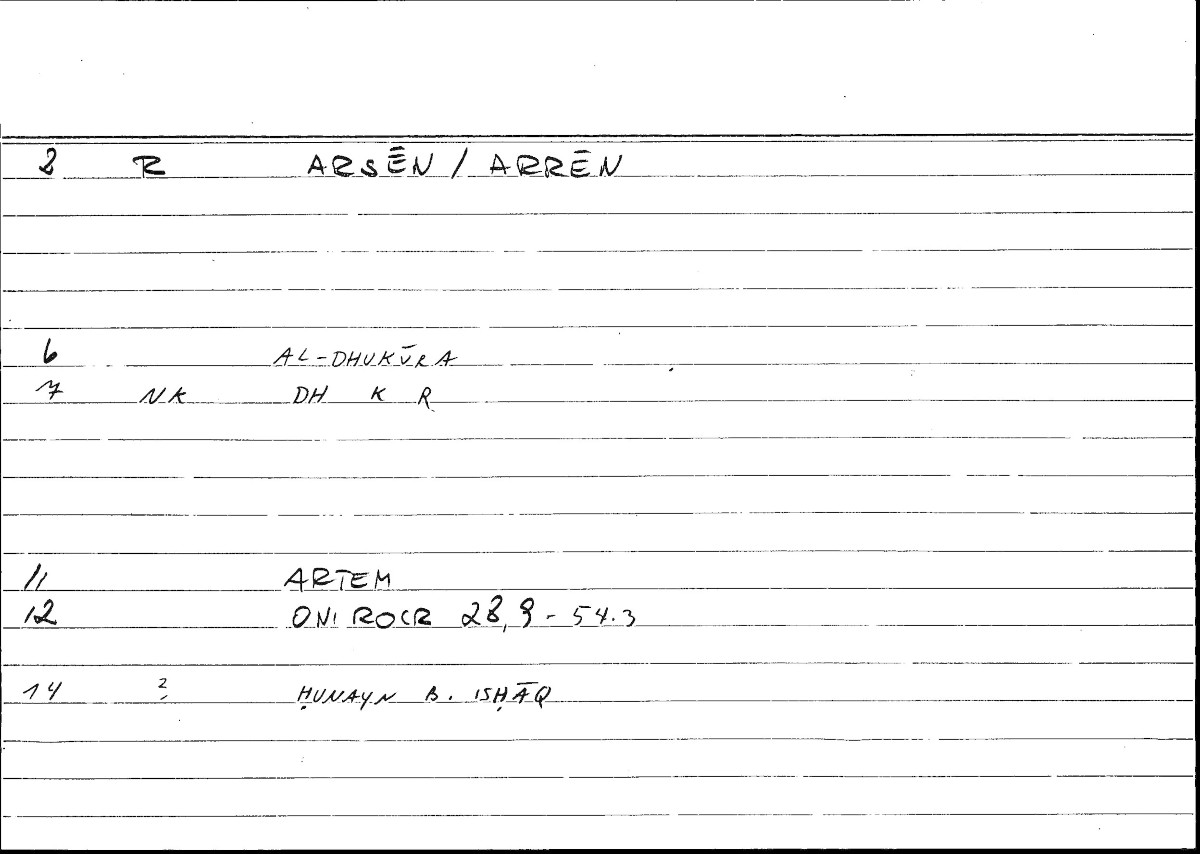 2 R ARSĒN / ARRĒN
6 AL-DHUKŪRA
7 NK DH K R
11 ARTEM
12 ONIROCR 28,9 - 54.3
14 ? ḤUNAYN B. ISḤĀQ